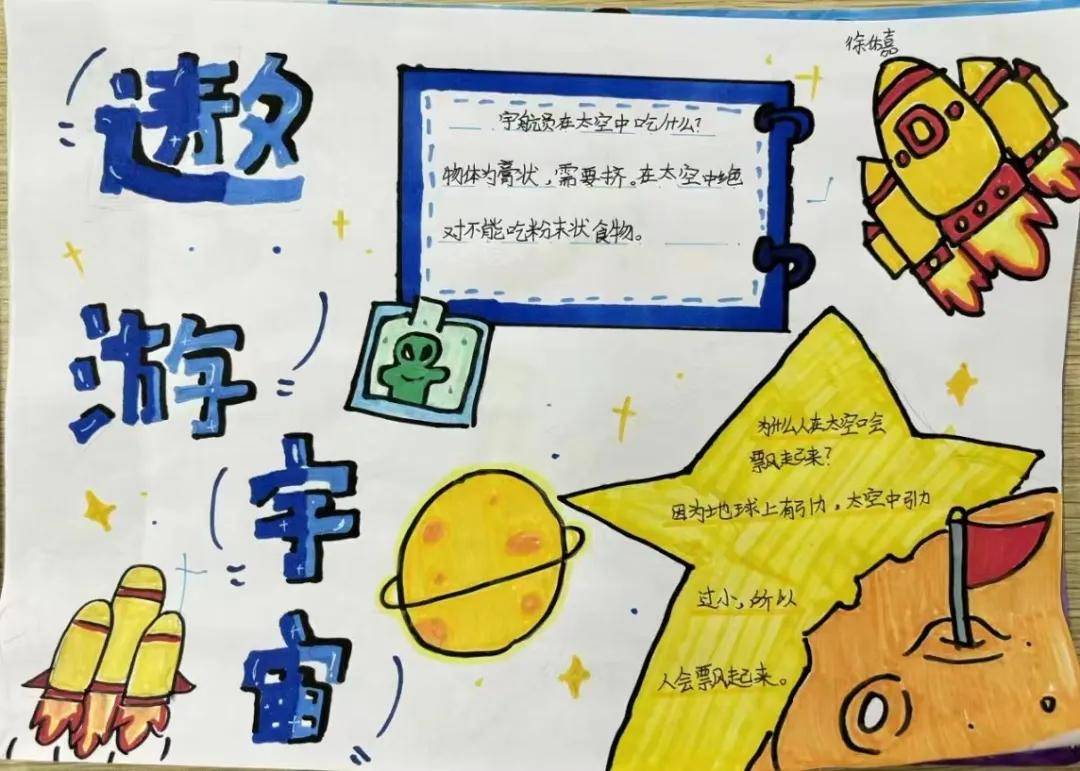 遨
游
宇
宙
宇航员在太空中吃什么?
物体为膏状,需要挤。在太空中绝
对不能吃粉末状食物。
为什么人在太空口会
飘起来?
因为地球上有引力,太空中引力
过小,所以
人会飘起来。